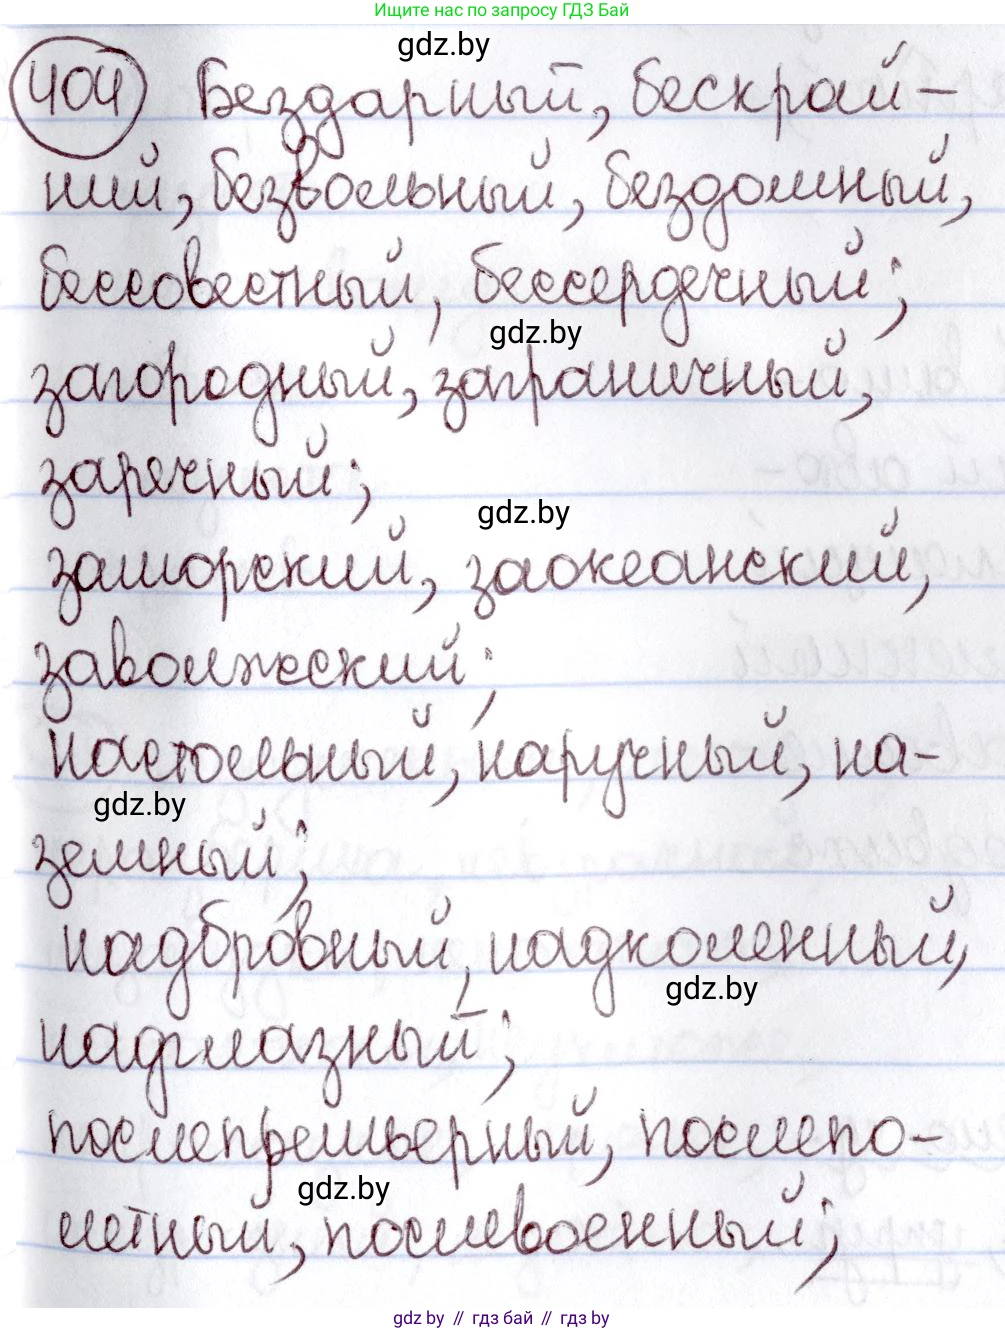 Ищите нас по запросу ГДЗ Бай
gdz.by
404 Бездарный, бескрай-
ний, безвольный, бездомный,
бессовестный, бессердечный;
gdz.by
загородный, заграничный,
заречный;
gdz.by
заморский, заокеанский,
заволжский;
настольный, наручный, на-
gdz.by
земный;
надбровный, надколенный,
gdz.by
надглазный;
послепремьерный, послепо-
gdz.by
летный, послевоенный;
gdz.by // гдз бай // гдз by